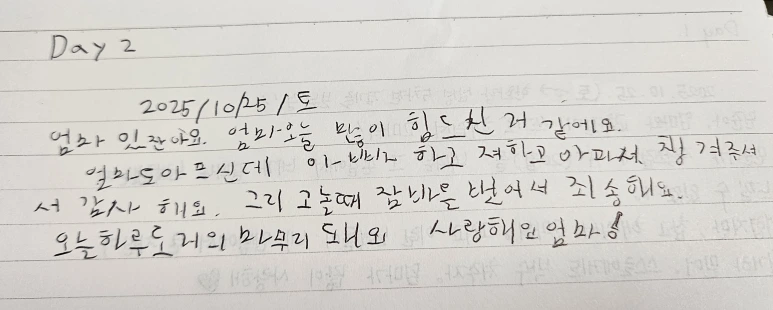 Day 2
2025/10/25/토
엄마 있잔아요. 엄마 오늘 많이 힘드친 거 같에요.
엄마도아프신데 하고 저하고 아파서 챙겨주셔
서 감사 해요. 그리고놀때 잠바을 벋어서 죄송해요.
오늘하루도 거의 마무리 돼요 사랑해요엄마!